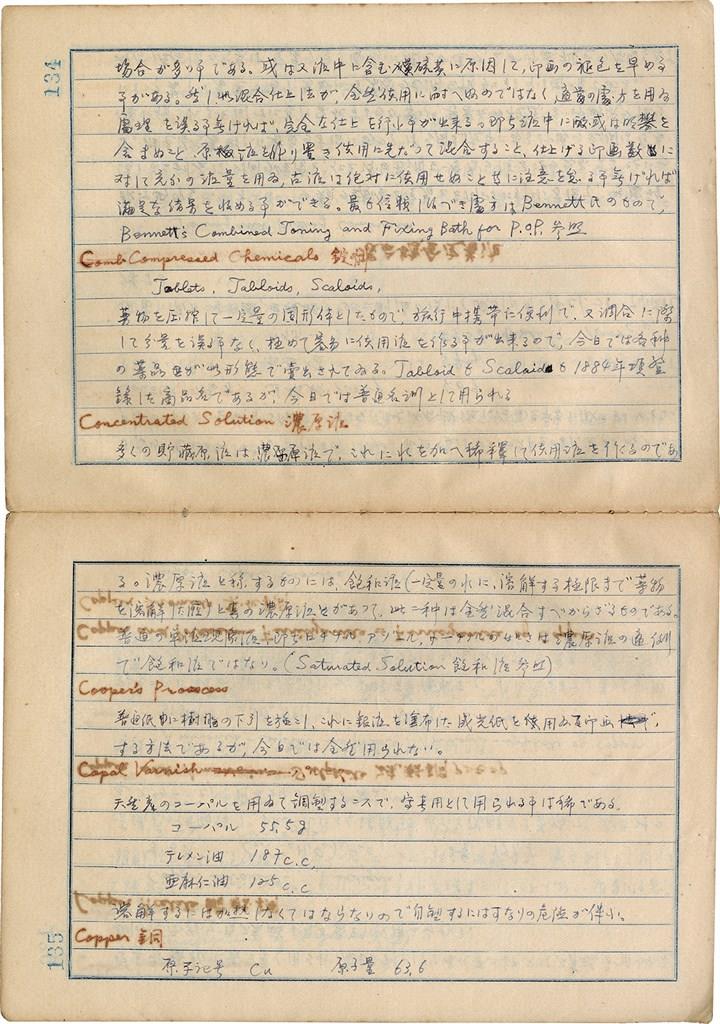 134
場合が多い事である。或は又液中に含む硫黄に原因して、印画の褪色を早める
事がある。然し此混合仕上法が、全然使用に耐へぬのではなく適当の處方を用ゐ
處理を誤る事無ければ、完全な仕上を行ふ事が出来る。即ち液中に酸或は明礬を
含まぬこと、原液を作り置き使用に先だって混合すること、仕上げる印画数に
対して充分の液量を用ゐ、古液は絶対に使用せぬこと等に注意を怠る事無ければ
満足な結果を収める事ができる。最も信頼しうべき處方はBennett氏のもので、
Bennett's Combined Toning and Fixing Bath for P.O.P. 参照
Compressed Chemicals
Tablets, Tabloids, Scaloids,
薬物を圧縮して一定量の固形体としたもので旅行中携帯に便利で、又調合に際
して分量を誤る事なく、極めて容易に使用液を作る事が出来るので、今日では各種
の薬品が此形態で賣出されてゐる。Tabloid も Scaloid も 1884年頃登
録した商品名であるが、今日では普通名詞として用られる
Concentrated Solution 濃厚液
多くの貯蔵原液は濃厚液で、これに水を加へ稀釋して使用液を作るのであ
る。濃厚液と称するものには、飽和液(一定量の水に、溶解する極限まで薬物
を溶解した液)と単の濃厚液とがあつて、此二種は全然混合すべからざるものである。
は濃厚液の適例
で飽和液ではない。(Saturated Solution 飽和液参照)
Cooper's Process
普通紙面に樹脂の下引を施こし、これに銀液を塗布した感光紙を使用ゐる印画
する方法であるが、今日では全然用られない。
Copal Varnish
天然産のコーパルを用ゐて調製するニスで、寫真用として用られる事は稀である。
コーパル 55.5g
テレメン油 187c.c.
亜麻仁油 125c.c.
溶解するには加熱しなくてはならないので自製するにはすなりの危険が伴ふ。
Copper 銅
原子記号 Cu 原子量 63.6
135